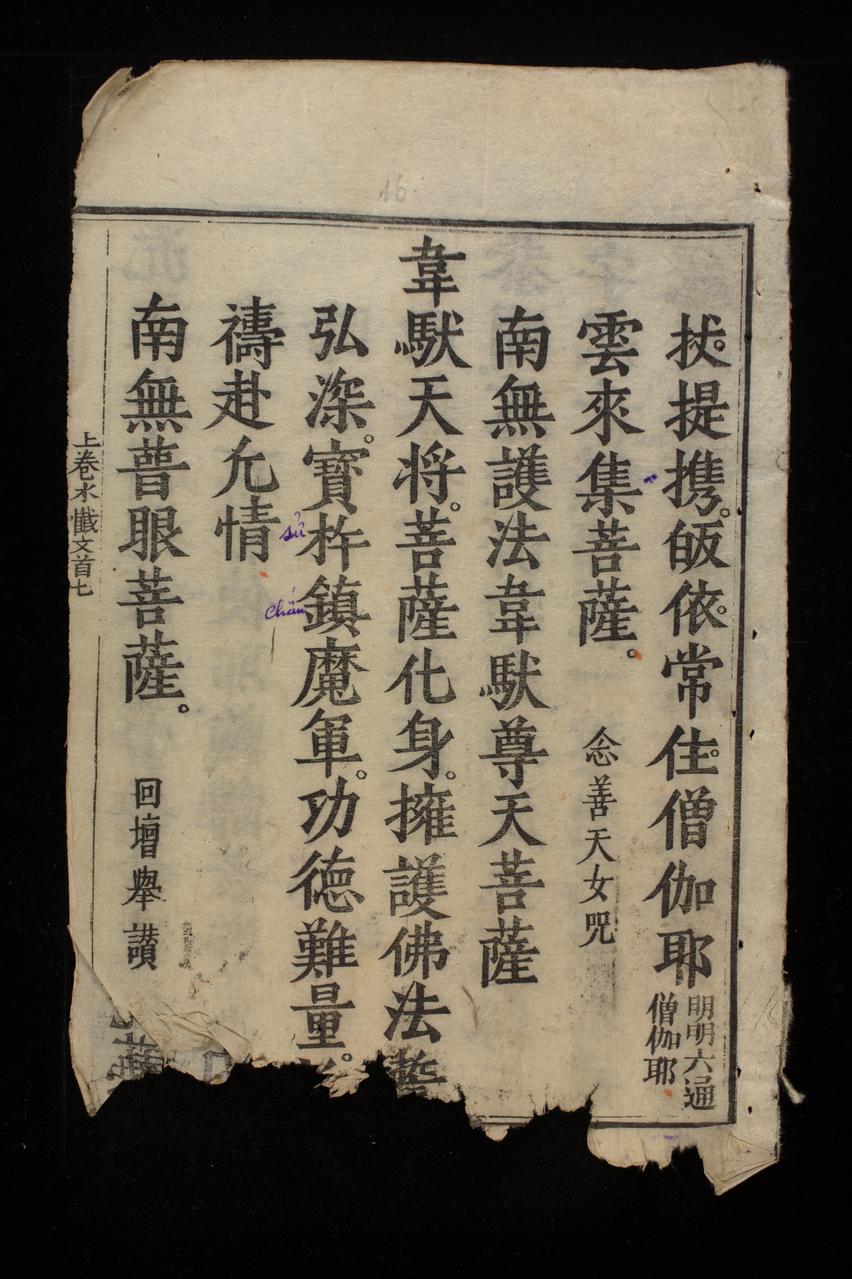 拔提携皈依常住僧伽耶
明明六通
僧伽耶
雲來集菩薩
念善天女咒
南無護法韋馱尊天菩薩
韋馱天将菩薩化身擁護佛法誓
弘深寶杵鎮魔軍功德難量
sử
chấn
禱赴允情
南無普眼菩薩
回壇舉讃
上卷水懺文首七
16